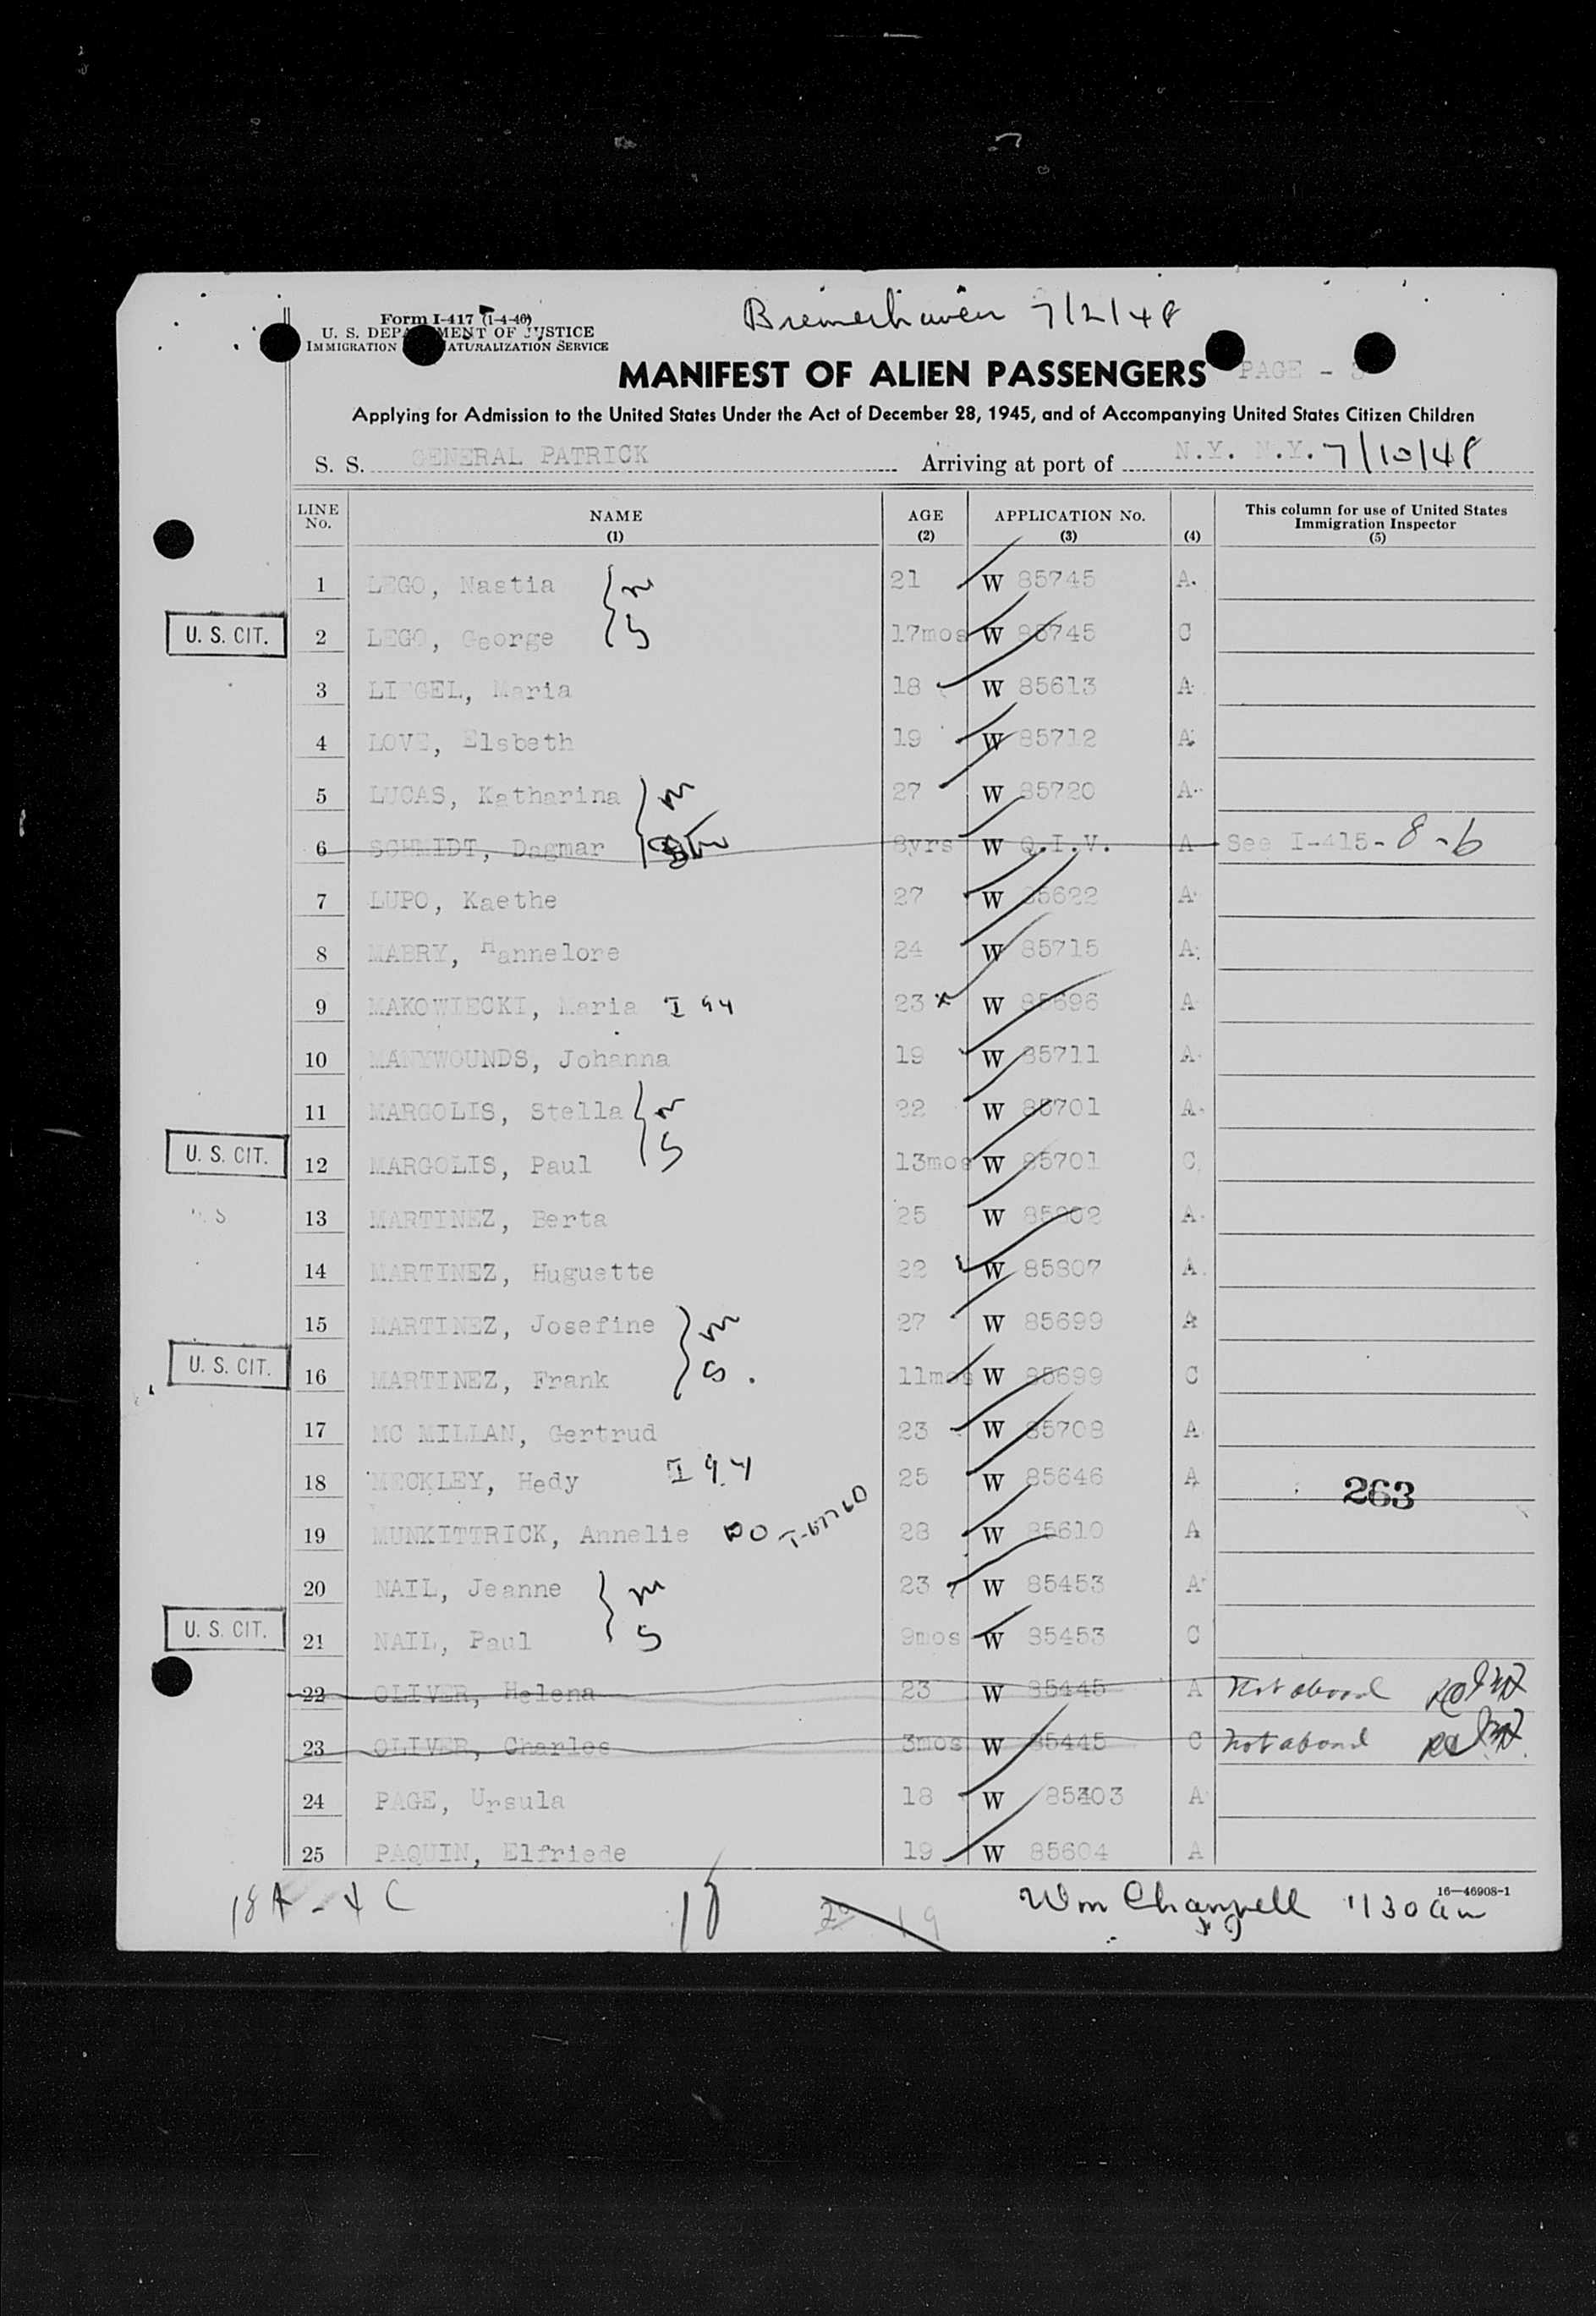 Bremerhaven 7/2/48
Form I-417 (1-4-46)
U. S. DEPARTMENT OF JUSTICE
IMMIGRATION NATURALIZATION SERVICE
MANIFEST OF ALIEN PASSENGERS PAGE -
Applying for Admission to the United States Under the Act of December 28, 1945, and of Accompanying United States Citizen Children
S. S. GENERAL PATRICK Arriving at port of N.Y. N.Y. 7/10/48
LINE No. NAME (1) AGE (2) APPLICATION No. (3) (4) This column for use of United States Immigration Inspector (5)
1 LEGO, Nastia m 21 W 85745 A
U. S. CIT. 2 LEGO, George S 17mos W 85745 C
3 LIEGEL, Maria 18 W 85613 A
4 LOVE, Elsbeth 19 W 85712 A
5 LUCAS, Katharina m 27 W 85720 A
6 SCHMIDT, Dagmar 8yrs W Q.I.V. A See I-415-8-6
7 LUPO, Kaethe 27 W 85622 A
8 MABRY, Hannelore 24 W 85715 A
9 MAKOWIECKI, Maria I 94 23 W 85696 A
10 MANYWOUNDS, Johanna 19 W 85711 A
11 MARGOLIS, Stella m 22 W 85701 A
U. S. CIT. 12 MARGOLIS, Paul S 13mos W 85701 C
13 MARTINEZ, Berta 25 W A
14 MARTINEZ, Huguette 22 W 85807 A
15 MARTINEZ, Josefine m 27 W 85699 A
U. S. CIT. 16 MARTINEZ, Frank S. 11mos W 85699 C
17 MC MILLAN, Gertrud 23 W 85708 A
18 MECKLEY, Hedy I 94 25 W 85646 A 263
19 MUNKITTRICK, Annelie 28 W 85610 A
20 NAIL, Jeanne m 23 W 85453 A
U. S. CIT. 21 NAIL, Paul S 9mos W 85453 C
22 OLIVER, Helena 23 W 85445 A Not aboard
23 OLIVER, Charles 3mos W 85445 C Not aboard
24 PAGE, Ursula 18 W A
25 PAQUIN, Elfriede 19 W 85604 A
16—46908-1
18A - 4C 18 20 19 Wm Chappell 1130 am